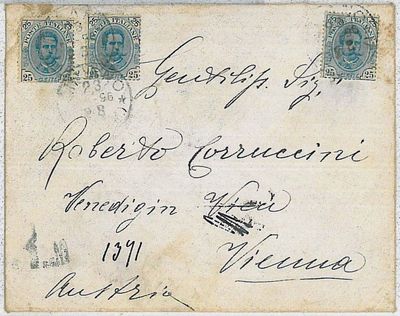 POSTE ITALIANE POSTE ITALIANE
25 25 25 25 25 25
23
96
8
Gentiliss. Sig.
Roberto Corruccini
Venedigin Wien
1391
Vienna
Austria